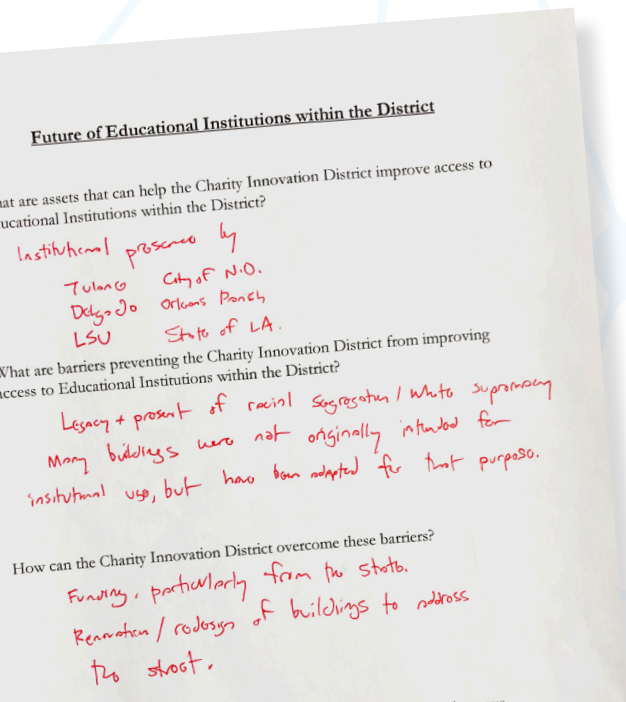 Future of Educational Institutions within the District
hat are assets that can help the Charity Innovation District improve access to
ucational Institutions within the District?
Institutional presence by
Tulane City of N.O.
Delgado Orleans Parish
LSU State of LA.
What are barriers preventing the Charity Innovation District from improving
access to Educational Institutions within the District?
Legacy + present of racial segregation / white supremacy
Many buildings were not originally intended for
insitutional use, but have been adapted for that purpose.
How can the Charity Innovation District overcome these barriers?
Funding, particularly from the state.
Renovation / redesign of buildings to address
the street.